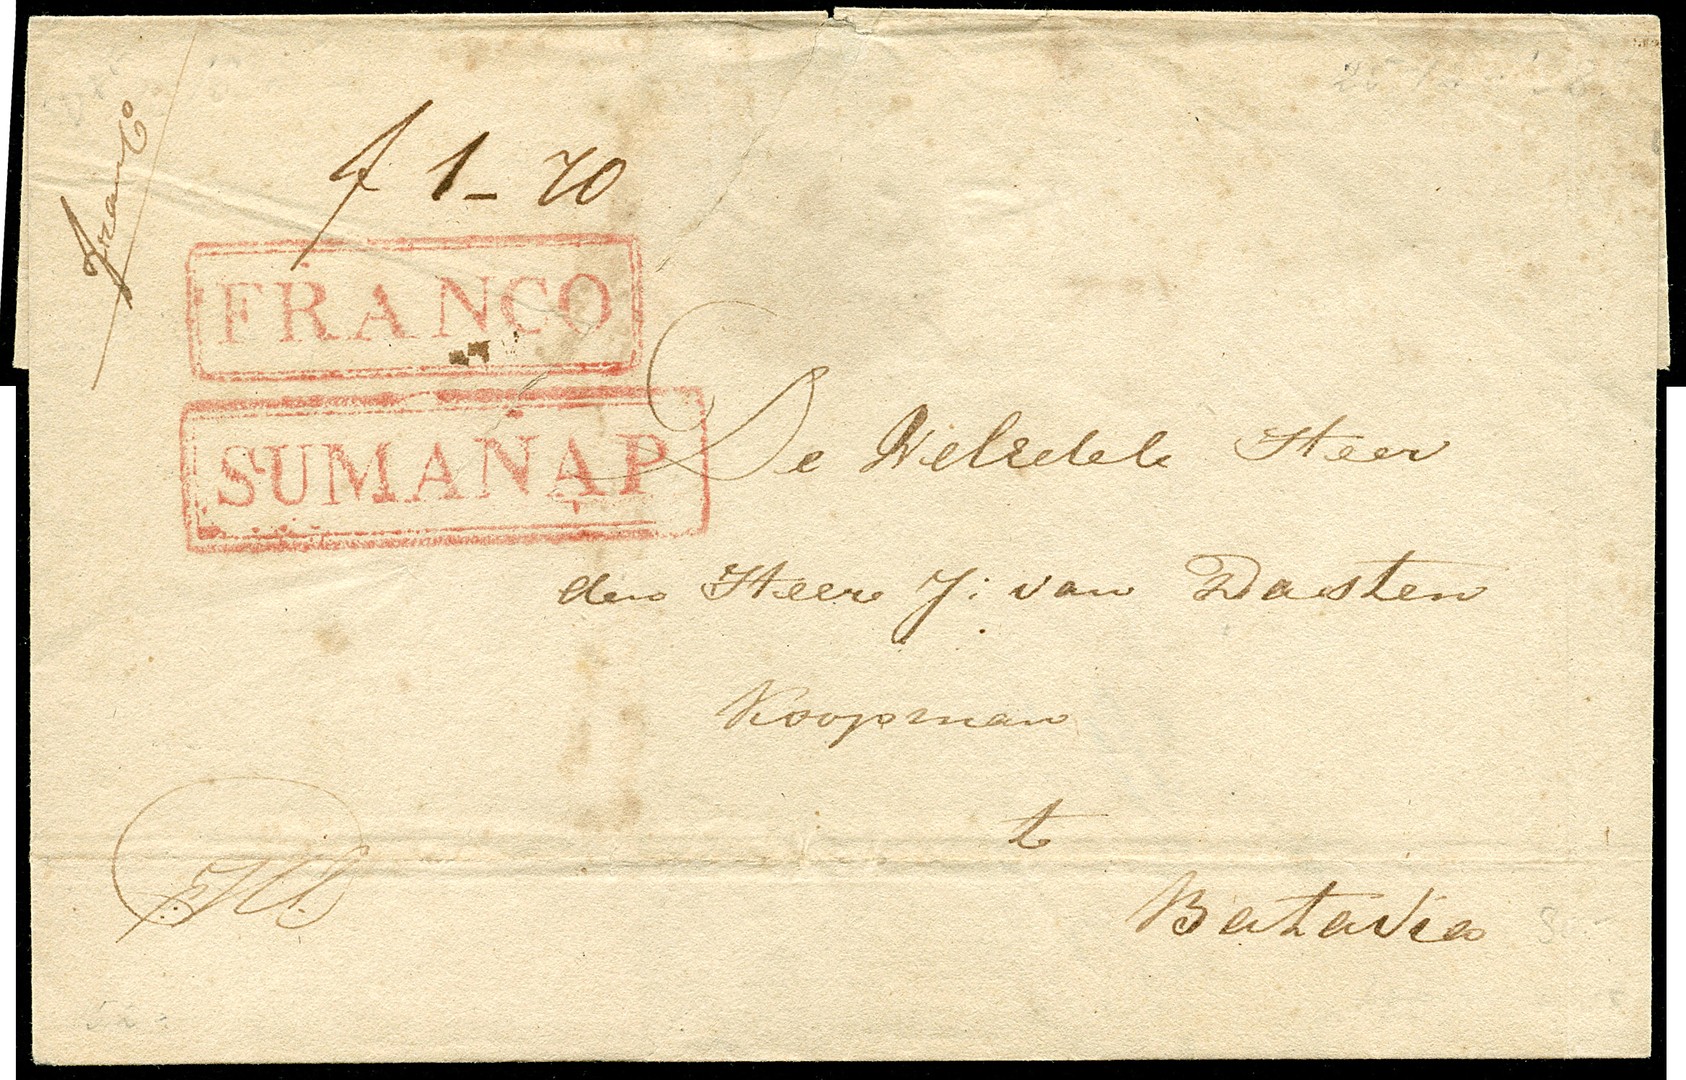 franco
f 1-70
FRANCO
SUMANAP
De Weledele Heer
den Heer J: van Dasten
Koopman
te
Batavia